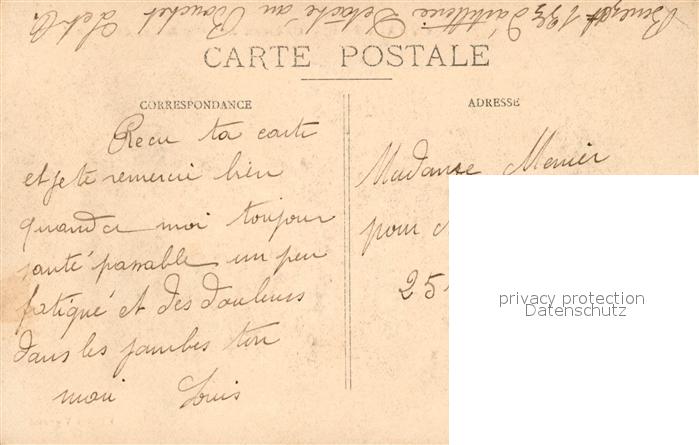 d'artillerie Détaché au Bouchet
CARTE POSTALE
CORRESPONDANCE
Recu ta carte
et je te remerci bien
quand a moi toujour
santé passable un peu
fatigué et des douleurs
dans les jambes ton
mari Louis
ADRESSE
Madame Menier
pour
25
privacy protection
Datenschutz